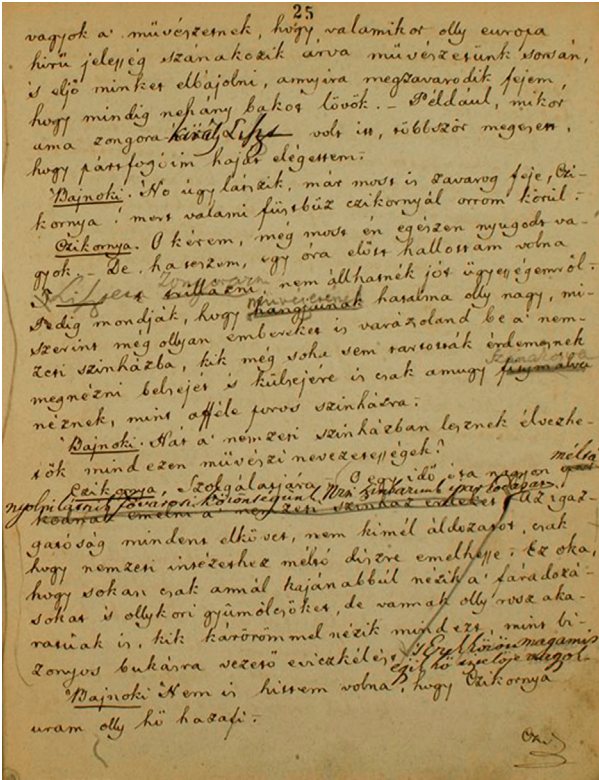 25
vagyok a' művészetnek, hogy valamikor olly europa
hirü jelesség szánakozik árva művészetünk sorsán,
's eljő minket elbájolni, annyira megzavarodik fejem,
hogy mindig néhány bakot lövök. – Például, mikor
ama zongora király Liszt volt itt, többször megesett,
hogy pártfogóim haját elégettem. –
Bajnoki. No úgy látszik, már most is zavarog feje, Czi-
kornya! mert valami füstbűz czikornyál orrom körül. –
Czikornya. O kérem, még most én egészen nyugodt va-
gyok. – De, ha teszem, egy óra előtt hallottam volna
Lisztet zongorázni
trillázni, nem állhatnék jót ügyességemről. –
művészetének
Pedig mondják, hogy hangjainak hatalma olly nagy, mi-
szerint még ollyan embereket is varázsoland be a' nem-
zeti szinházba, kik még soha sem tartották érdemesnek
szánakozva
megnézni belsejét 's külsejére is csak amugy fitymálva
néznek, mint afféle poros szinházra. –
Bajnoki. Hát a' nemzeti szinházban lesznek élvezhe-
tők mind ezen művészi nevezetességek?
Czikornya. Szolgálatjára. O egy idő óta nagyon
méltá
nyolni látszik fővárosi közönségünk
emelni a' nemzeti szinház érdekét. Az igaz-
gatóság mindent elkövet, nem kimél áldozatot, csak
hogy nemzeti intézethez méltó diszre emelhesse. Ez oka,
hogy sokan csak annál kajánabbúl nézik a' fáradozá-
sokat 's ollykori gyümölcsöket, de vannak olly rosz aka-
ratúak is, kik kárörömmel nézik mindezt, mint bi-
zonyos bukásra vezető eviczkélést.
Egyébiránt magam is
Bajnoki. Nem is hittem volna, hogy Czikornya
uram olly hű hazafi. –